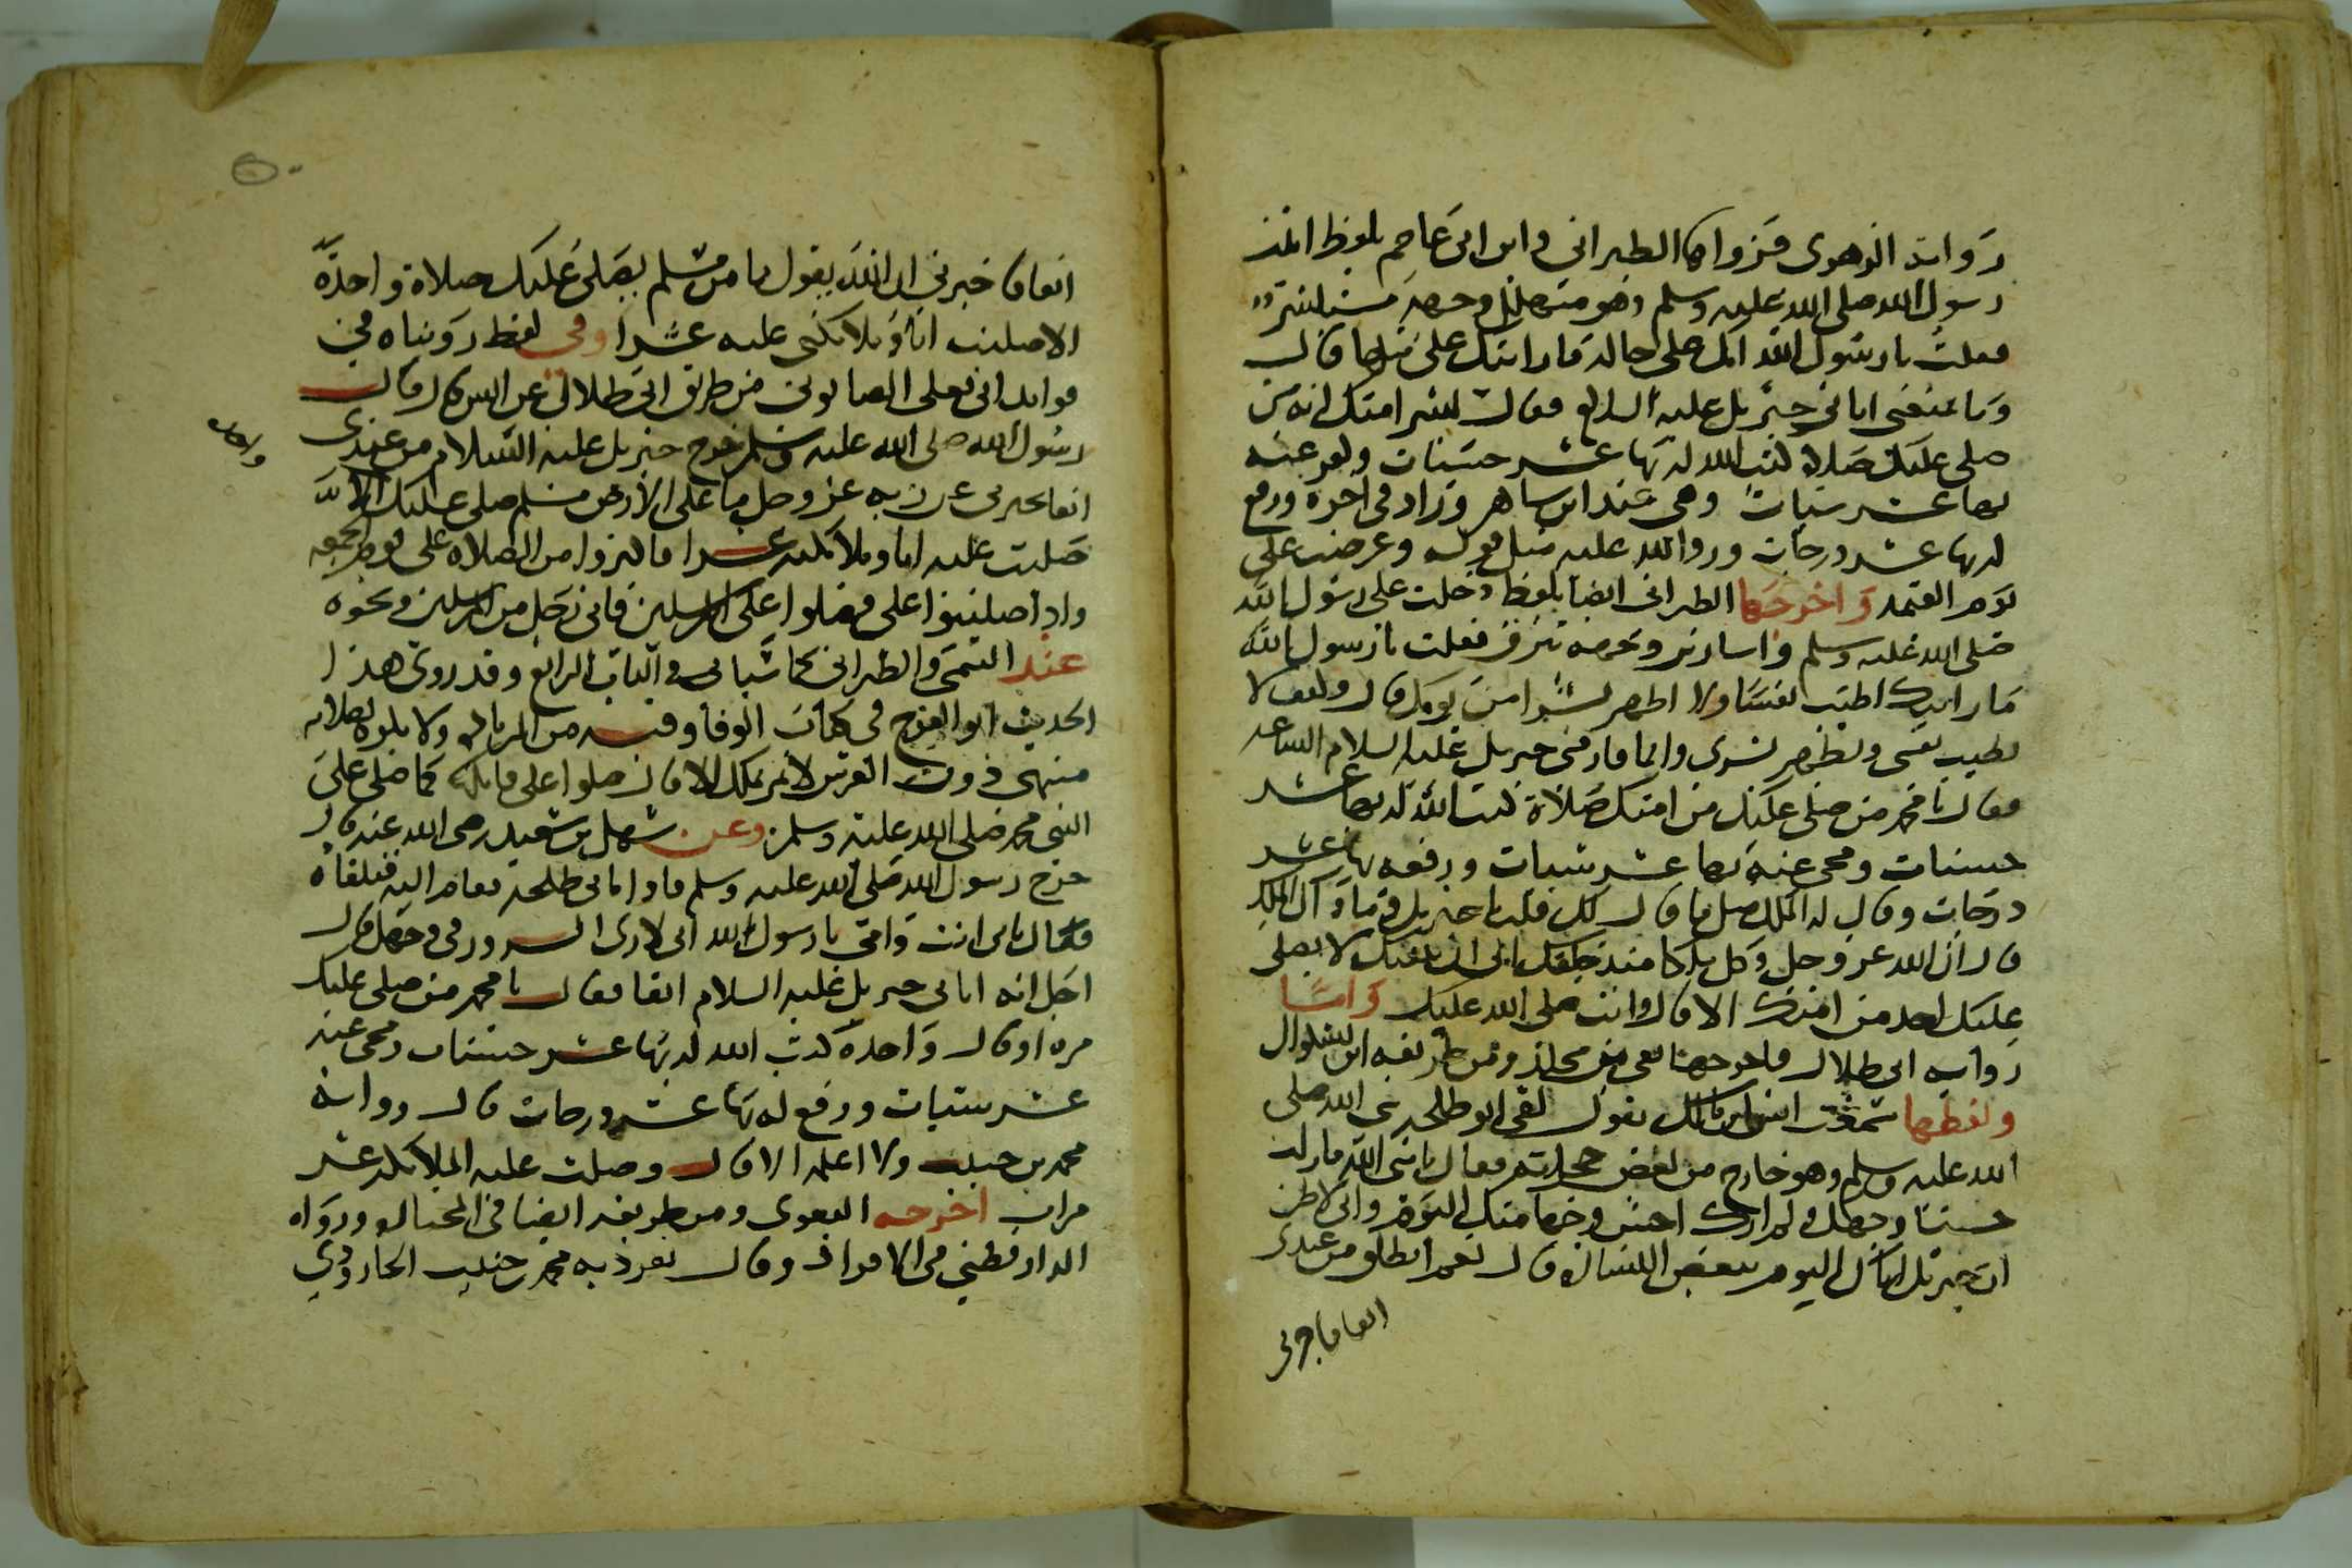 رواية الزهري فرواها الطبراني وابن ابي عاصم بلفظ اتيت
رسول الله صلى الله عليه وسلم وهو متهلل وجهه مستبشر
فقلت يا رسول الله انك على حالة ما رايتك على مثلها قال
وما يمنعني اتاني جبريل عليه السلام فقال بشر امتك انه من
صلى عليك صلاة كتب الله له بها عشر حسنات وكفر عنه
بها عشر سيات وهي عند ابن شاهين وزاد في اخره ورفع
له بها عشر درجات ورد الله عليه مثل قوله وعرضت علي
يوم القيمه واخرجها الطبراني ايضا بلفظ دخلت على رسول الله
صلى الله عليه وسلم واسارير وجهه تبرق فقلت يا رسول الله
ما رايتك اطيب نفسا ولا اظهر بشرا من يومك قال وكيف لا
تطيب نفسي ويظهر بشري وانما فارقني جبريل عليه السلام الساعه
فقال يا محمد من صلى عليك من امتك صلاة كتب الله له بها عشر
حسنات ومحى عنه بها عشر سيات ورفعه بها عشر
درجات وقال له الملك مثل ما قال لك قلت يا جبريل وما ذاك الملك
قال ان الله عز وجل وكل ملكا منذ خلقك الى ان يبعثك لا يصلي
عليك احد من امتك الا قال وانت صلى الله عليك واما
رواية ابي ظلال فاخرجها بقي بن مخلد ومن طريقه ابن بشكوال
ولفظها سمعت انس بن مالك يقول لقي ابو طلحة نبي الله صلى
الله عليه وسلم وهو خارج من بعض حجراته فقال يا نبي الله ما زلت
حسنا وجهك ولم ارك احسن وجها منك اليوم واني لاظن
ان جبريل اتاك اليوم ببعض البشارة قال نعم انطلق من عندي
انفا فاخبرني
انفا فاخبرني ان الله يقول ما من مسلم يصلي عليك صلاة واحدة
الا صليت انا وملائكتي عليه عشرا وفي لفظ رويناه في
فوائد ابي يعلى الصابوني من طريق ابي ظلال عن انس قال قال
رسول الله صلى الله عليه وسلم خرج جبريل عليه السلام من عندي
انفا يخبرني عن ربه عز وجل ما على الارض مسلم صلى عليك الا
صليت عليه انا وملائكته عشرا فاكثروا من الصلاة علي يوم الجمعه
واذا صليتم علي فصلوا على المرسلين فاني رجل من المرسلين ونحوه
عند التيمي والطبراني كما سياتي في الباب الرابع وقد روى هذا
الحديث ابو الفرج في كتاب الوفا وفيه من الزيادة ولا يكون لصلاته
منتهى دون العرش لا تمر بملك الا قال صلوا على قائلها كما صلى على
النبي محمد صلى الله عليه وسلم وعن سهل بن سعد رضي الله عنه قال
خرج رسول الله صلى الله عليه وسلم فاذا بابي طلحة فقام اليه فتلقاه
فقال بابي انت وامي يا رسول الله اني لارى السرور في وجهك قال
اجل انه اتاني جبريل عليه السلام انفا فقال يا محمد من صلى عليك
مرة او قال واحدة كتب الله له بها عشر حسنات ومحى عنه
عشر سيات ورفع له بها عشر درجات قال رواية
محمد بن حبيب ولا اعلمه الا قال وصلت عليه الملائكة عشر
مرات اخرجه البغوي ومن طريقه الضيا في المختارة ورواه
الدارقطني في الافراد وقال تفرد به محمد بن حبيب الجارودي